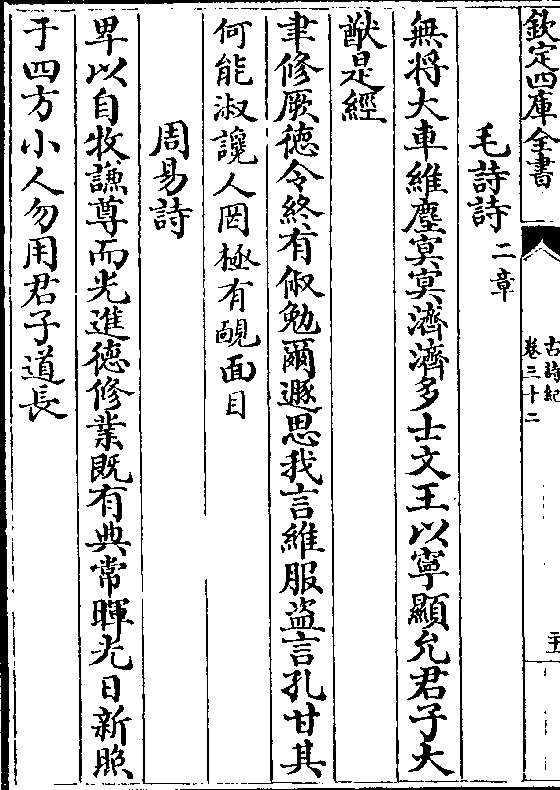 欽定四庫全書
古詩紀
卷三十二
毛詩詩二章
無將大車維塵冥冥濟濟多士文王以寧顯允君子大
猷是經
聿修厥徳令終有俶勉爾遯思我言維服盗言孔甘其
何能淑讒人罔極有靦面目
周易詩
卑以自牧謙尊而光進徳修業既有典常暉光日新照
于四方小人勿用君子道長